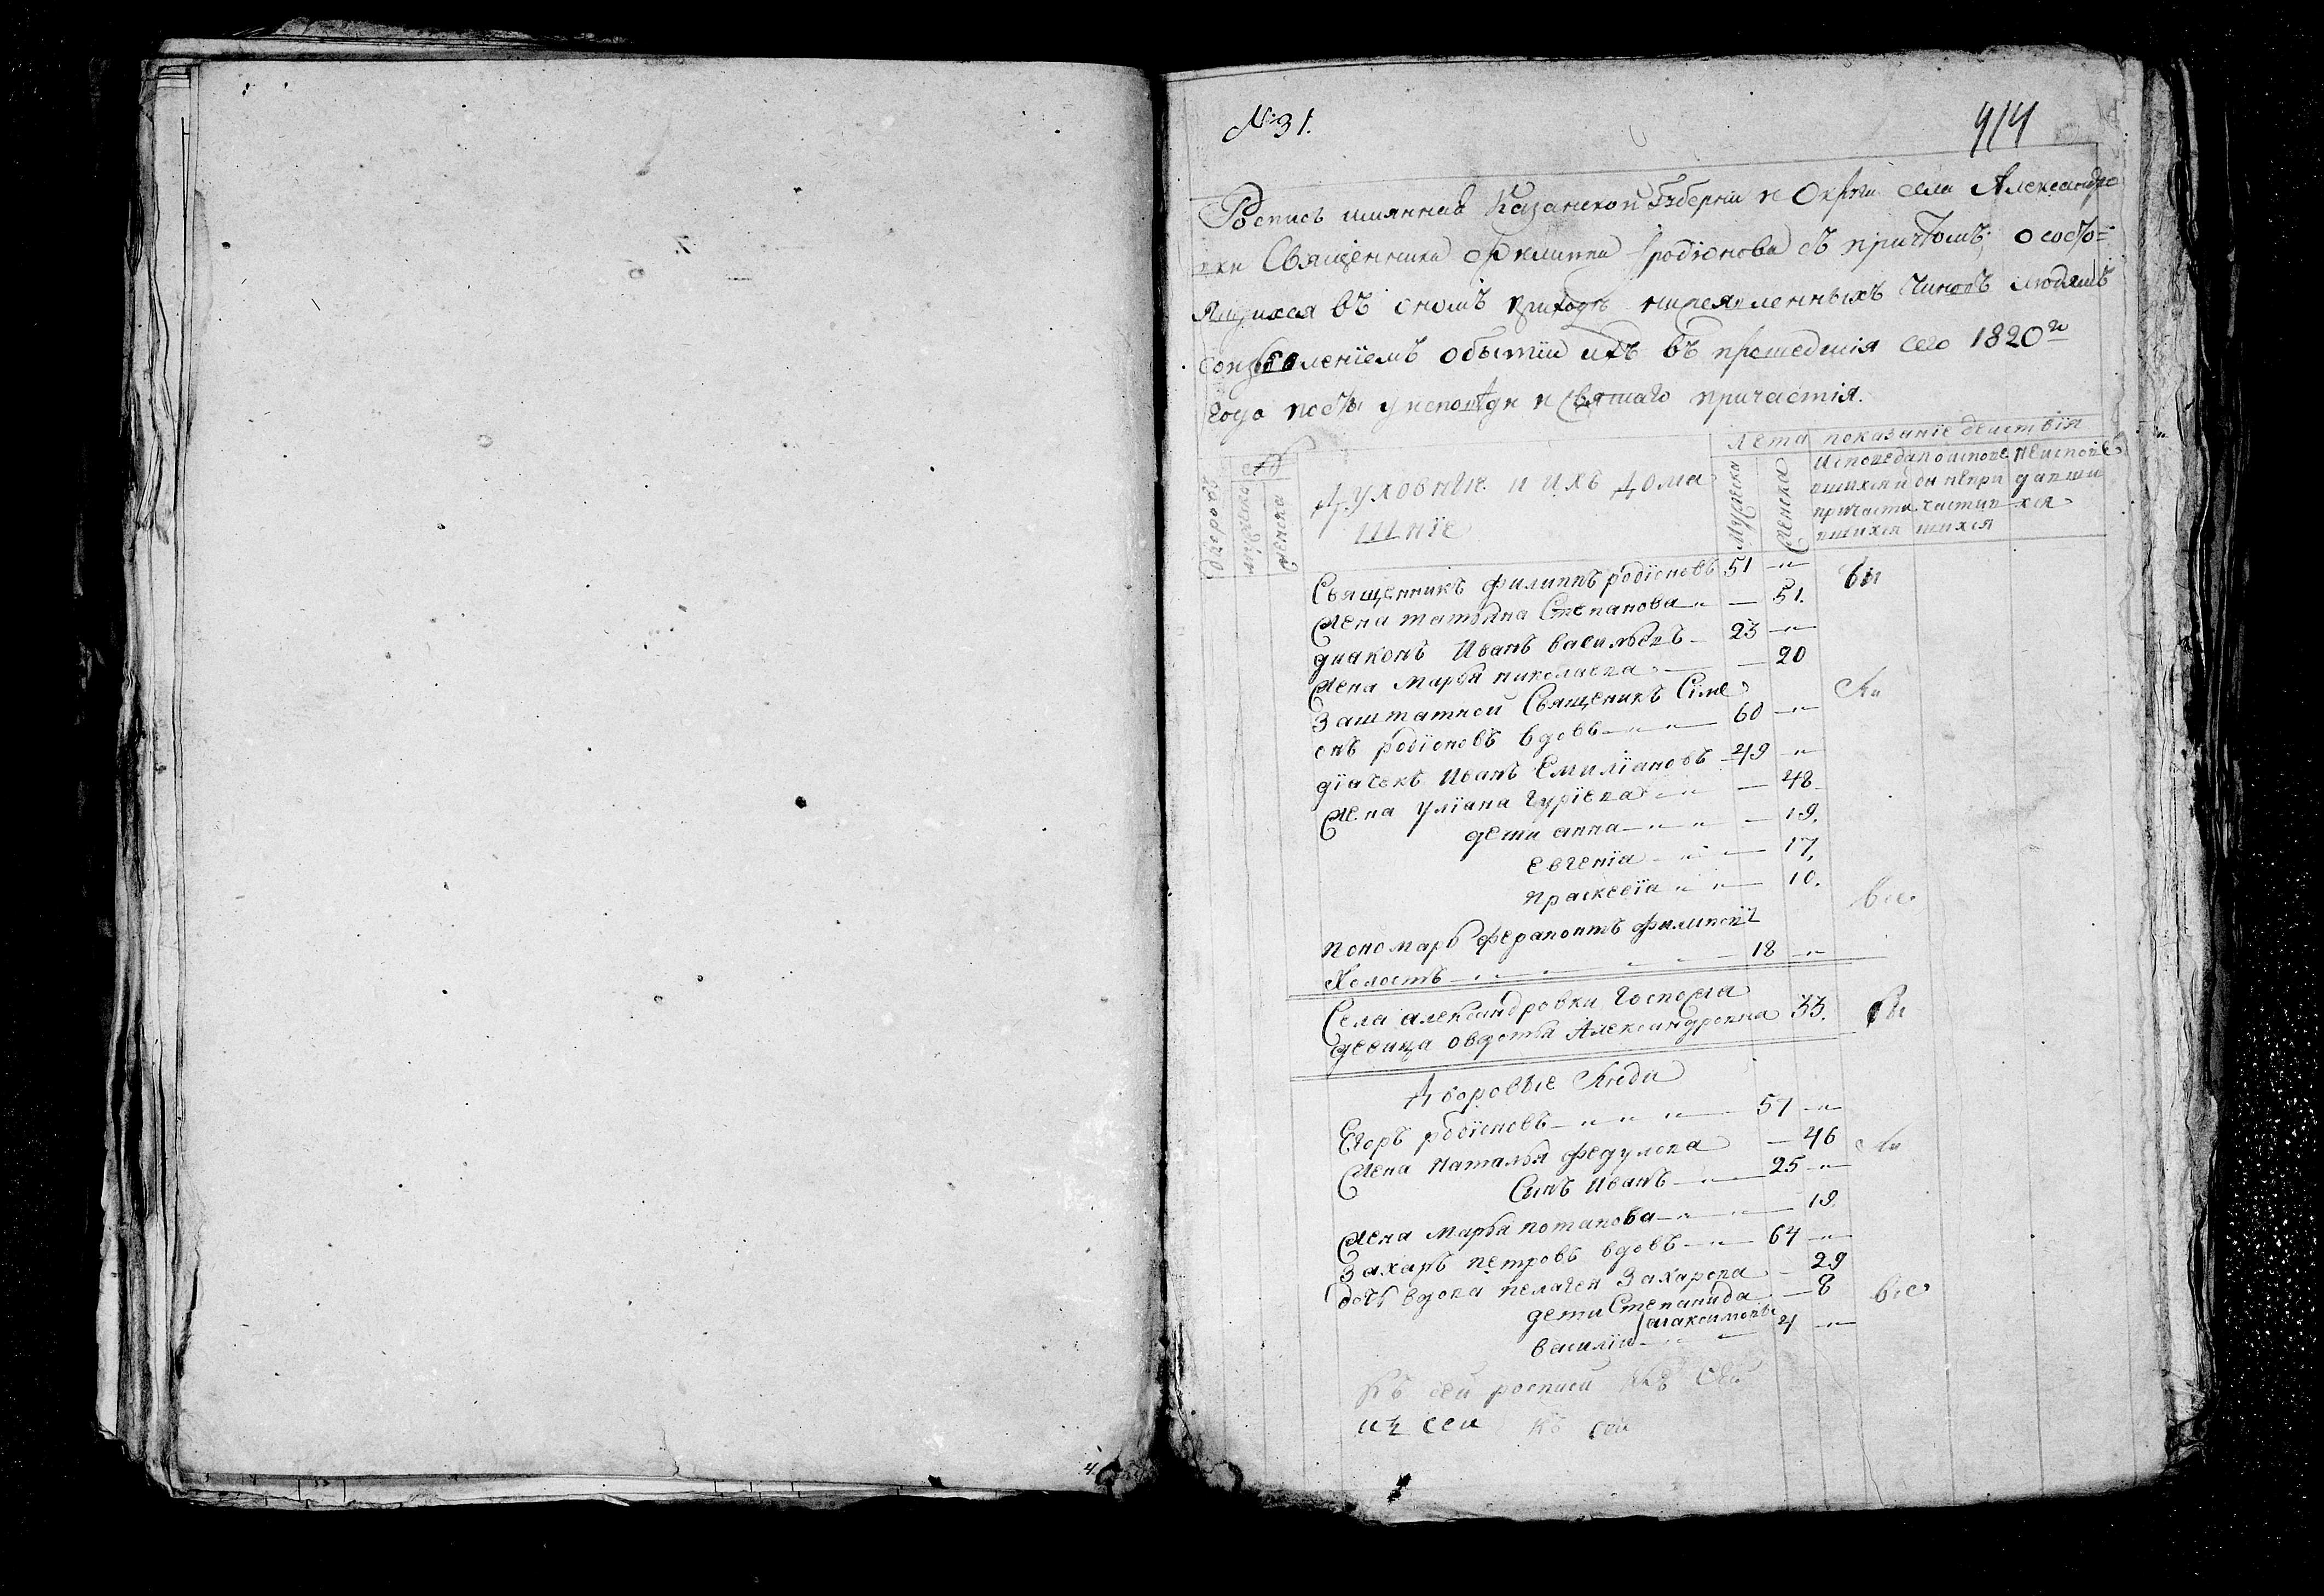 № 31.
414
Роспись имянная Казанской Губернiи и Округи села Александро
вки Священника Филиппа Родiонова съ причтомъ о состо=
ящихся въ ономъ приходе нижеявленныхъ чиновъ людямъ
со изъявленiемъ о бытiи ихъ въ прошедшiя сего 1820го
года посты у исповѣди и Святаго причастiя.
Лета показанiе действiя
Дворовъ
женска
Духовные и ихъ дома
шнiе
Мужеска
Женска
Исповедавшихся и причастившихся
исповедавшихся
Священникъ филиппъ родiоновъ 51
Жена татьяна Степанова 51.
диаконъ Иванъ васильевъ 23
Жена Марья николаева 20
Заштатной Священикъ Симе
онъ родiоновъ вдовъ 60
дiачекъ Иванъ Емилiановъ 49
Жена Улiана Гурiева 48
дети анна 19.
евгенiа 17,
праскевiа 10.
все
пономарь ферапонтъ филиповъ
Холостъ 18
Села александровки Госпожа
девица овдотья Александровна 33.
Дворовые Люди
Егоръ родiоновъ 57
Жена Наталья федулова 46
Сынъ Иванъ 25
Жена Марья потапова 19
Захаръ петровъ вдовъ 64
дочь вдова пелагея Захарова 29
дети Степанида 8
максимовы
василiи 4
все
Къ сей росписи Къ
из сеи къ сей